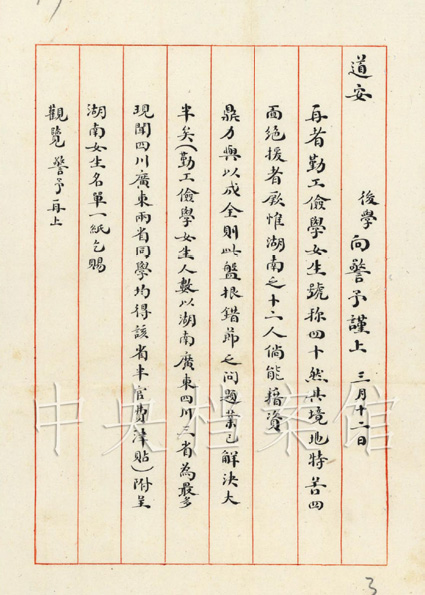 道安
後學向警予謹上 三月十二日
再者勤工儉學女生號称四十然其境地特苦四
面絕援者厥惟湖南之十二人倘能藉資
鼎力與以成全則此盤根錯節之問題業已解決大
半矣(勤工儉學女生人數以湖南廣東四川三省為最多
現聞四川廣東兩省同學均得該省半官費津貼)附呈
湖南女生名單一紙乞賜
觀覽 警予再上
中央档案馆
3